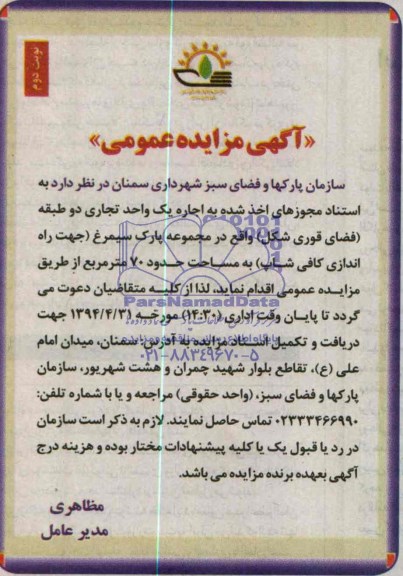 نوبت دوم
«آگهی مزایده عمومی»
سازمان پارکها و فضای سبز شهرداری سمنان در نظر دارد به
استناد مجوزهای اخذ شده به اجاره یک واحد تجاری دو طبقه
(فضای قوری شکل) واقع در مجموعه پارک سیمرغ (جهت راه
اندازی کافی شاپ) به مساحت حدود ۷۰ مترمربع از طریق
مزایده عمومی اقدام نماید، لذا از کلیه متقاضیان دعوت می
ParsNamadData
گردد تا پایان وقت اداری (۱۴:۳۰) مورخه ۱۳۹۴/۴/۳۱ جهت
دریافت و تکمیل اسناد مزایده به آدرس: سمنان، میدان امام
۰۲۱-۸۸۳۴۹۶۷۰-۵
علی (ع)، تقاطع بلوار شهید چمران و هشت شهریور، سازمان
پارکها و فضای سبز، (واحد حقوقی) مراجعه و یا با شماره تلفن:
۰۲۳۳۳۴۶۶۹۹۰ تماس حاصل نمایند. لازم به ذکر است سازمان
در رد یا قبول یک یا کلیه پیشنهادات مختار بوده و هزینه درج
آگهی بعهده برنده مزایده می باشد.
مظاهری
مدیر عامل